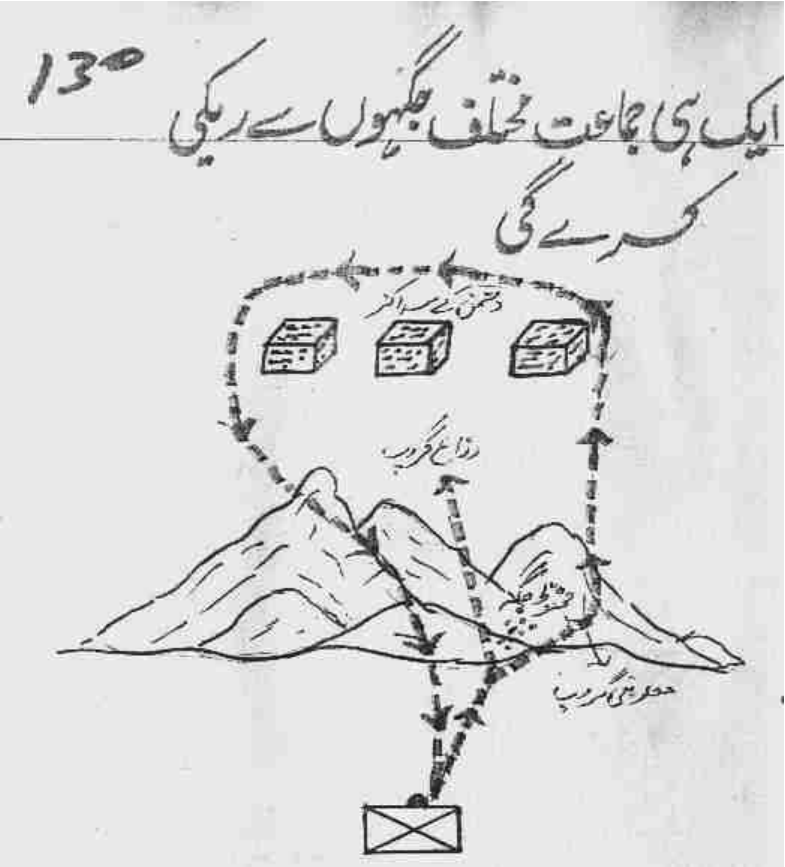 130
ایک ہی جماعت مختلف جگہوں سے ریکی
کرے گی
دشمن کے مراکز
دفاع گروپ
محفوظ جگہ
گروپ